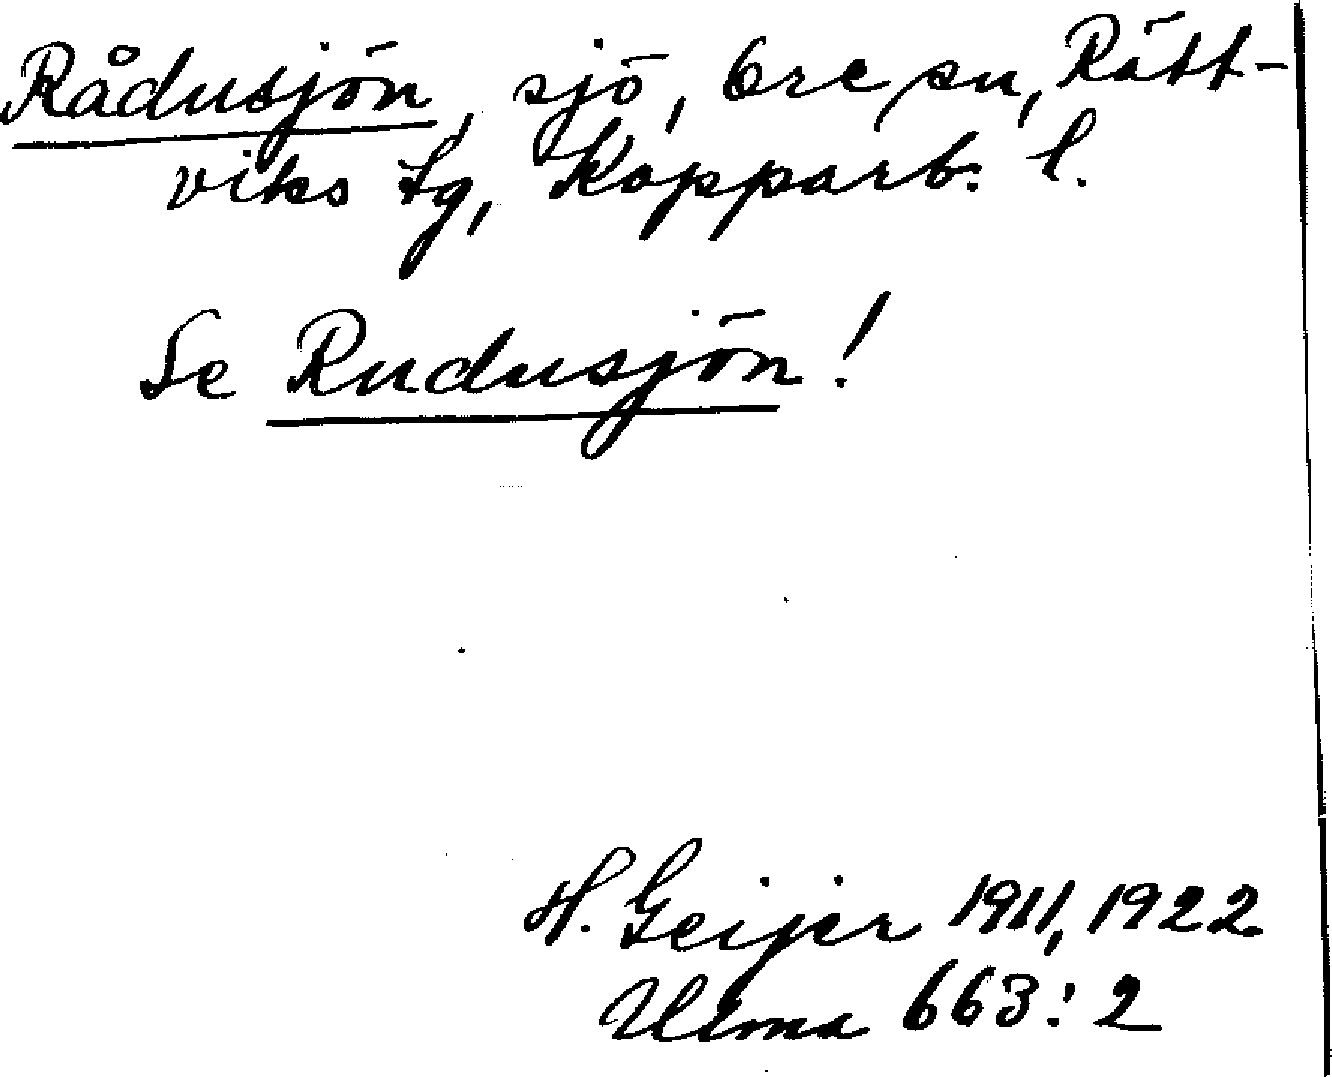 Rådusjön, sjö, Ore sn, Rätt-
viks tg, Kopparb. l.
Se Rudusjön!
H. Geijer 1911, 1922
Ulma 663:2